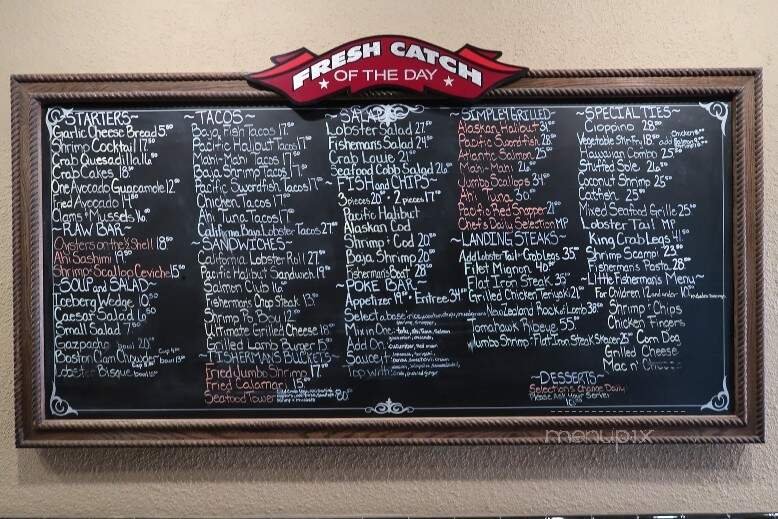 FRESH CATCH
OF THE DAY
~STARTERS~
Garlic Cheese Bread 5.50
Shrimp Cocktail 17.50
Crab Quesadilla 16
Crab Cakes 18.50
One Avocado Guacamole 12
Fried Avocado 14.50
Clams Mussels 16
~RAW BAR~
Oysters on the ½ Shell 18.50
Ahi Sashimi 19.50
Shrimp Scallop Ceviche 15.50
~SOUP and SALAD~
Iceberg Wedge 10.50
Caesar Salad 6.50
Small Salad 7.50
Gazpacho bowl 20
Boston Clam Chowder
Lobster Bisque
~TACOS~
Baja Fish Tacos 17
Pacific Halibut Tacos 17
Mahi-Mahi Tacos 17
Baja Shrimp Tacos 17
Pacific Swordfish Tacos 17
Chicken Tacos 17
Ahi Tuna Tacos 17
California Baja Lobster Tacos 27
~SANDWICHES~
California Lobster Roll 27
Pacific Halibut Sandwich 19
Salmon Club 16
Fisherman's Chop Steak 13
Shrimp Po Boy 12
Ultimate Grilled Cheese 18
Grilled Lamb Burger 15
~FISHERMAN'S BUCKETS~
Fried Jumbo Shrimp 17
Fried Calamari 15
Seafood Tower 80
~SALADS~
Lobster Salad 27
Fisherman's Salad 24
Crab Louie 21
Seafood Cobb Salad 26
~FISH and CHIPS~
3 pieces 20 • 2 pieces 17
Pacific Halibut
Alaskan Cod
Shrimp Cod 20
Baja Shrimp 20
Fisherman's Boat 28
~POKE BAR~
Appetizer 19 • Entree 34
Select a base
Mix in One
Add On
Sauce it
Top with
~SIMPLEY GRILLED~
Alaskan Halibut 34
Pacific Swordfish 28
Atlantic Salmon 25
Mahi-Mahi 26
Jumbo Scallops 34
Ahi Tuna 30
Pacific Red Snapper 21
Chef's Daily Selection MP
~LANDING STEAKS~
Add Lobster Tail • Crab Legs 35
Filet Mignon 40
Flat Iron Steak 35
Grilled Chicken Teriyaki 21
New Zealand Rock of Lamb 38
Tomahawk Ribeye 55
w/ Jumbo Shrimp • Flat Iron Steak Skewers 25
~SPECIALTIES~
Cioppino 28
Vegetable Stir-Fry 18
Hawaiian Combo 25
Stuffed Sole 26
Coconut Shrimp 25
Catfish 25
Mixed Seafood Grille 25
Lobster Tail MP
King Crab Legs 41
Shrimp Scampi 23
Fisherman's Pasta 28
~Little Fishermen's Menu~
For Children
Shrimp • Chips
Chicken Fingers
Corn Dog
Grilled Cheese
Mac n' Cheese
~DESSERTS~
Selections Change Daily
Please Ask Your Server
menupix